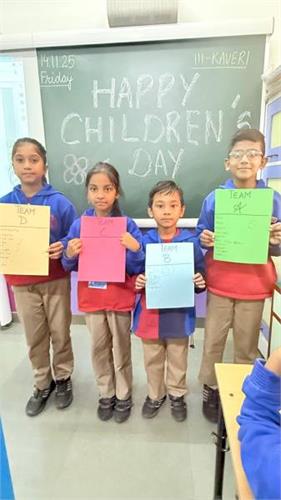 14.11.25
III-KAVERI
Friday
HAPPY
CHILDREN'S
DAY
TEAM
D
TEAM
B
TEAM
A